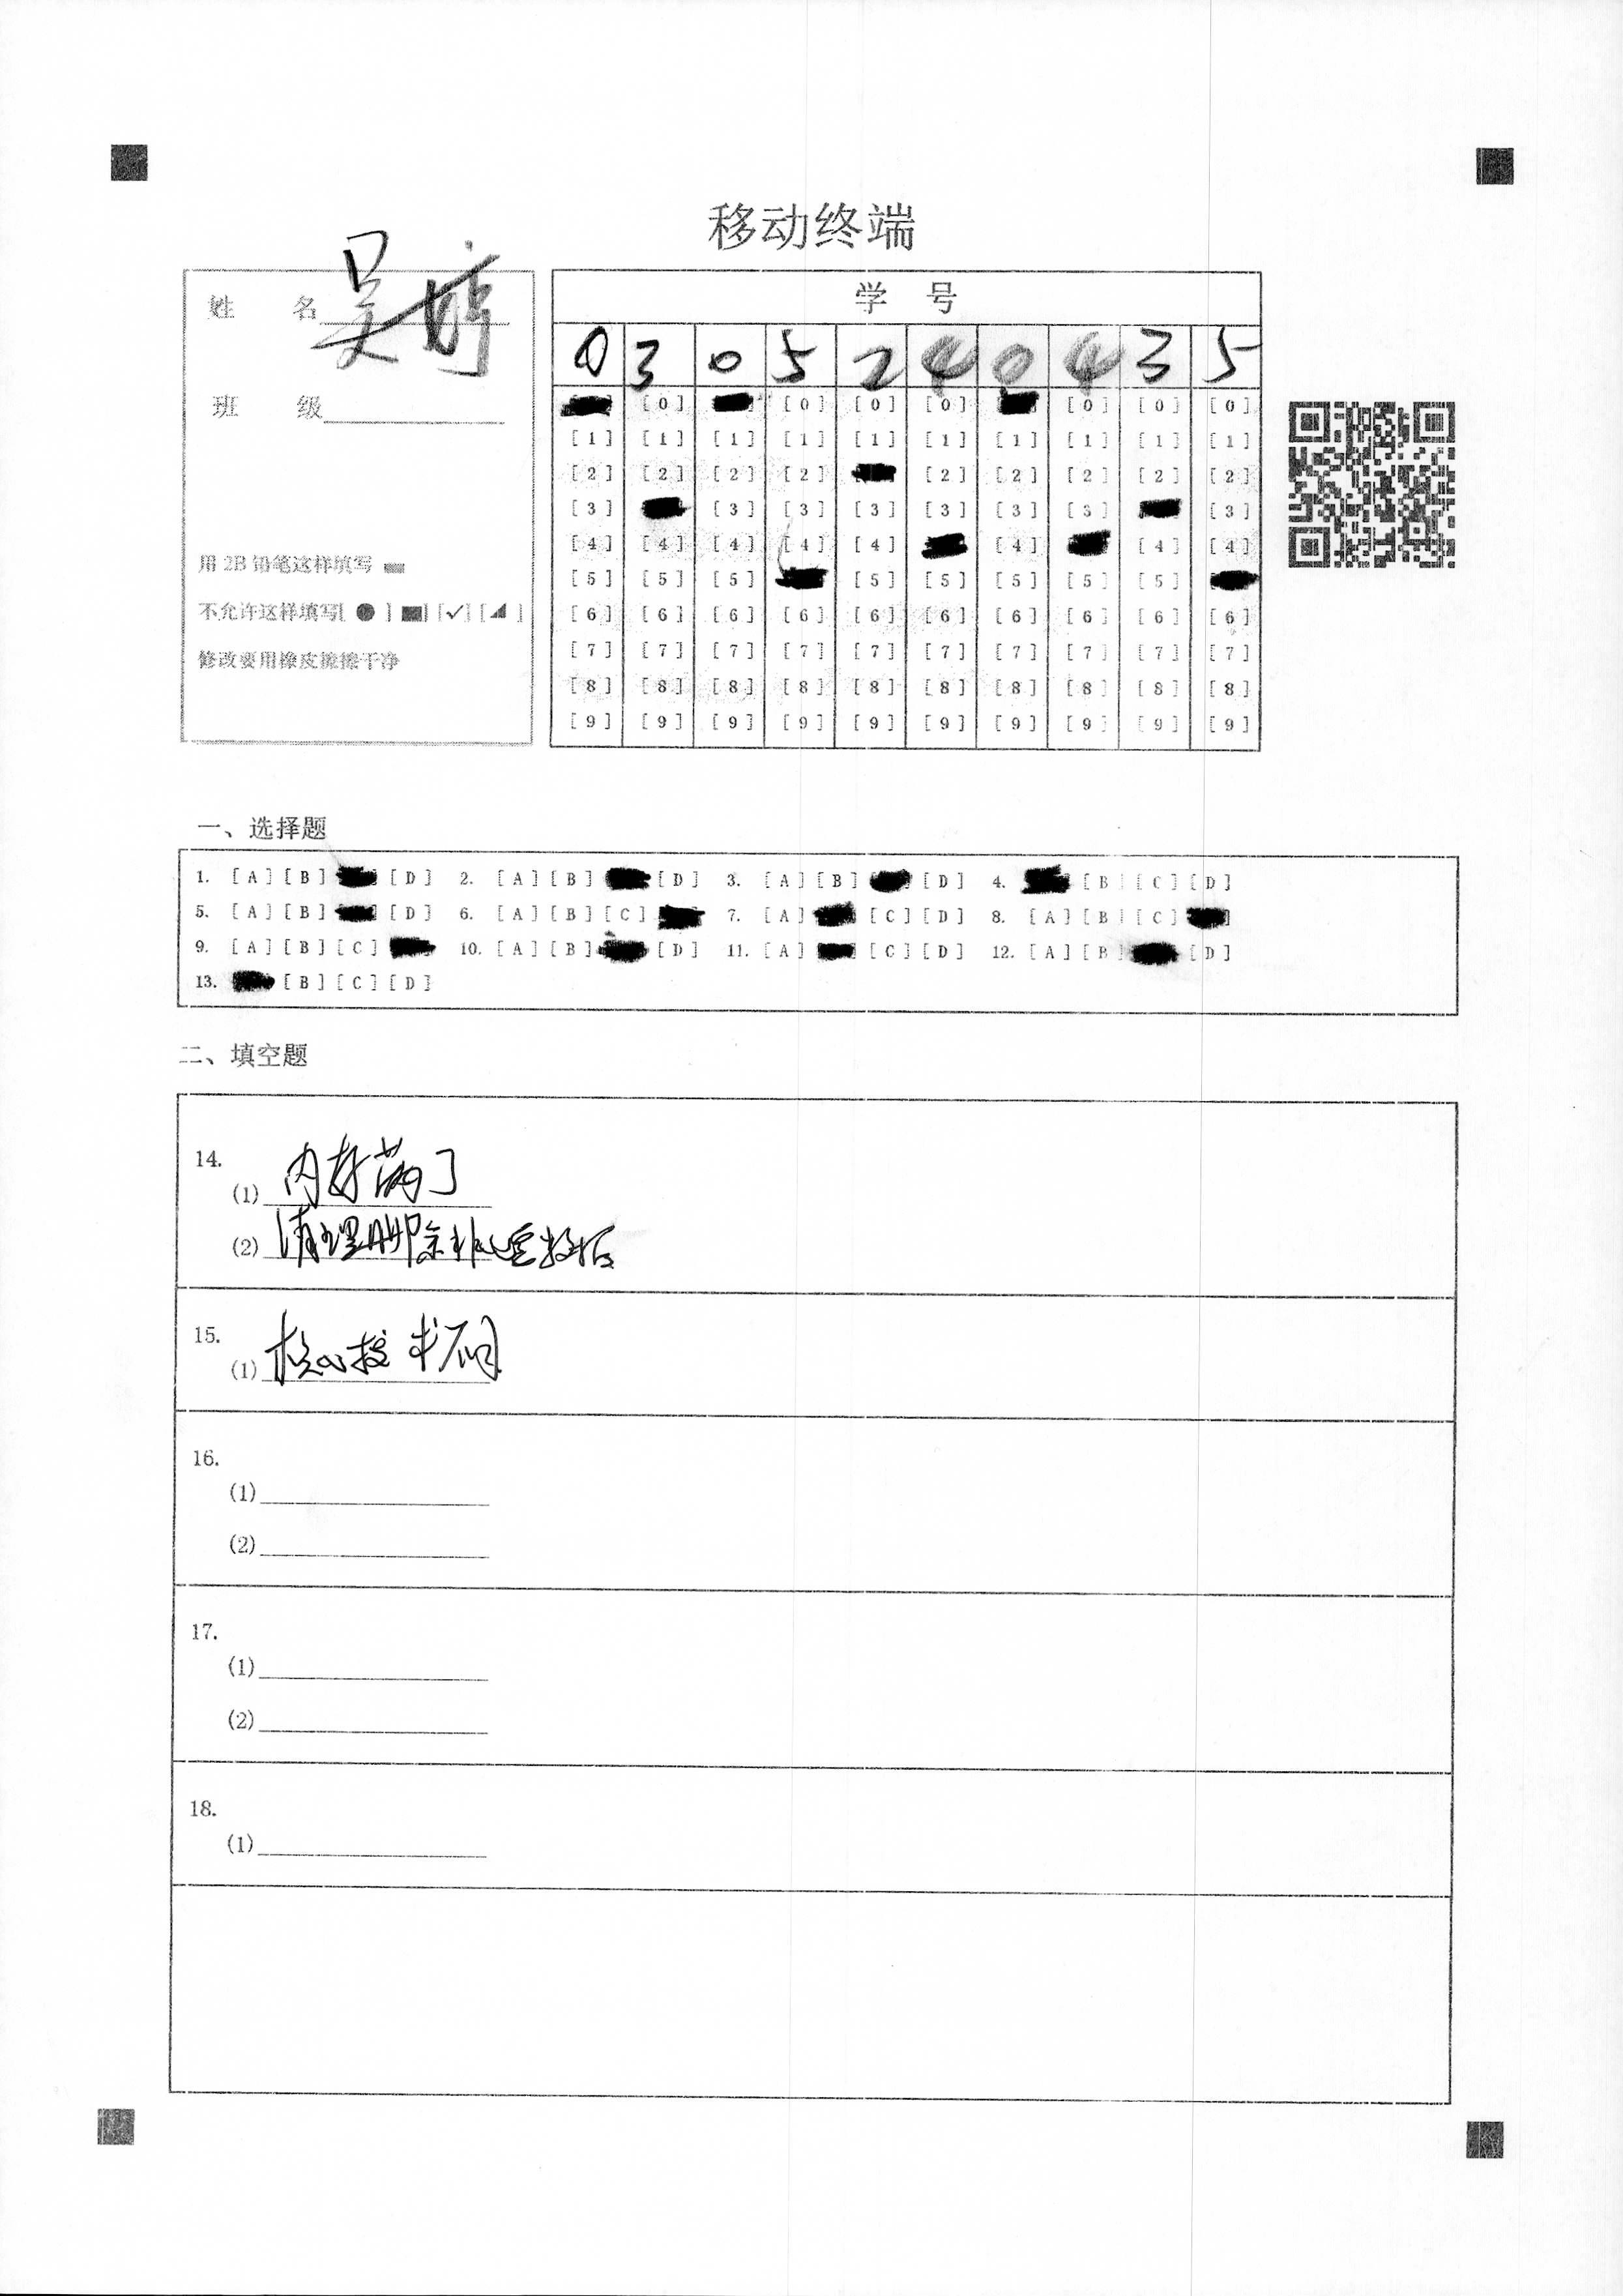 移动终端
姓 名 吴婷
班 级
用 2B 铅笔这样填写
不允许这样填写[ ● ] [■] [✓] [◢]
修改要用橡皮擦擦干净
学 号
0 3 0 5 2 4 0 4 3 5
[0] [0] [0] [0] [0] [0]
[1] [1] [1] [1] [1] [1] [1] [1] [1] [1]
[2] [2] [2] [2] [2] [2] [2] [2] [2]
[3] [3] [3] [3] [3] [3] [3] [3]
[4] [4] [4] [4] [4] [4] [4] [4]
[5] [5] [5] [5] [5] [5] [5] [5]
[6] [6] [6] [6] [6] [6] [6] [6] [6] [6]
[7] [7] [7] [7] [7] [7] [7] [7] [7] [7]
[8] [8] [8] [8] [8] [8] [8] [8] [8] [8]
[9] [9] [9] [9] [9] [9] [9] [9] [9] [9]
一、选择题
1. [A] [B] [D] 2. [A] [B] [D] 3. [A] [B] [D] 4. [B] [C] [D]
5. [A] [B] [D] 6. [A] [B] [C] 7. [A] [C] [D] 8. [A] [B] [C]
9. [A] [B] [C] 10. [A] [B] [D] 11. [A] [C] [D] 12. [A] [B] [D]
13. [B] [C] [D]
二、填空题
14.
(1) 内存满了
(2) 清理删除非必要数据
15.
(1) 核心技术不同
16.
(1)
(2)
17.
(1)
(2)
18.
(1)